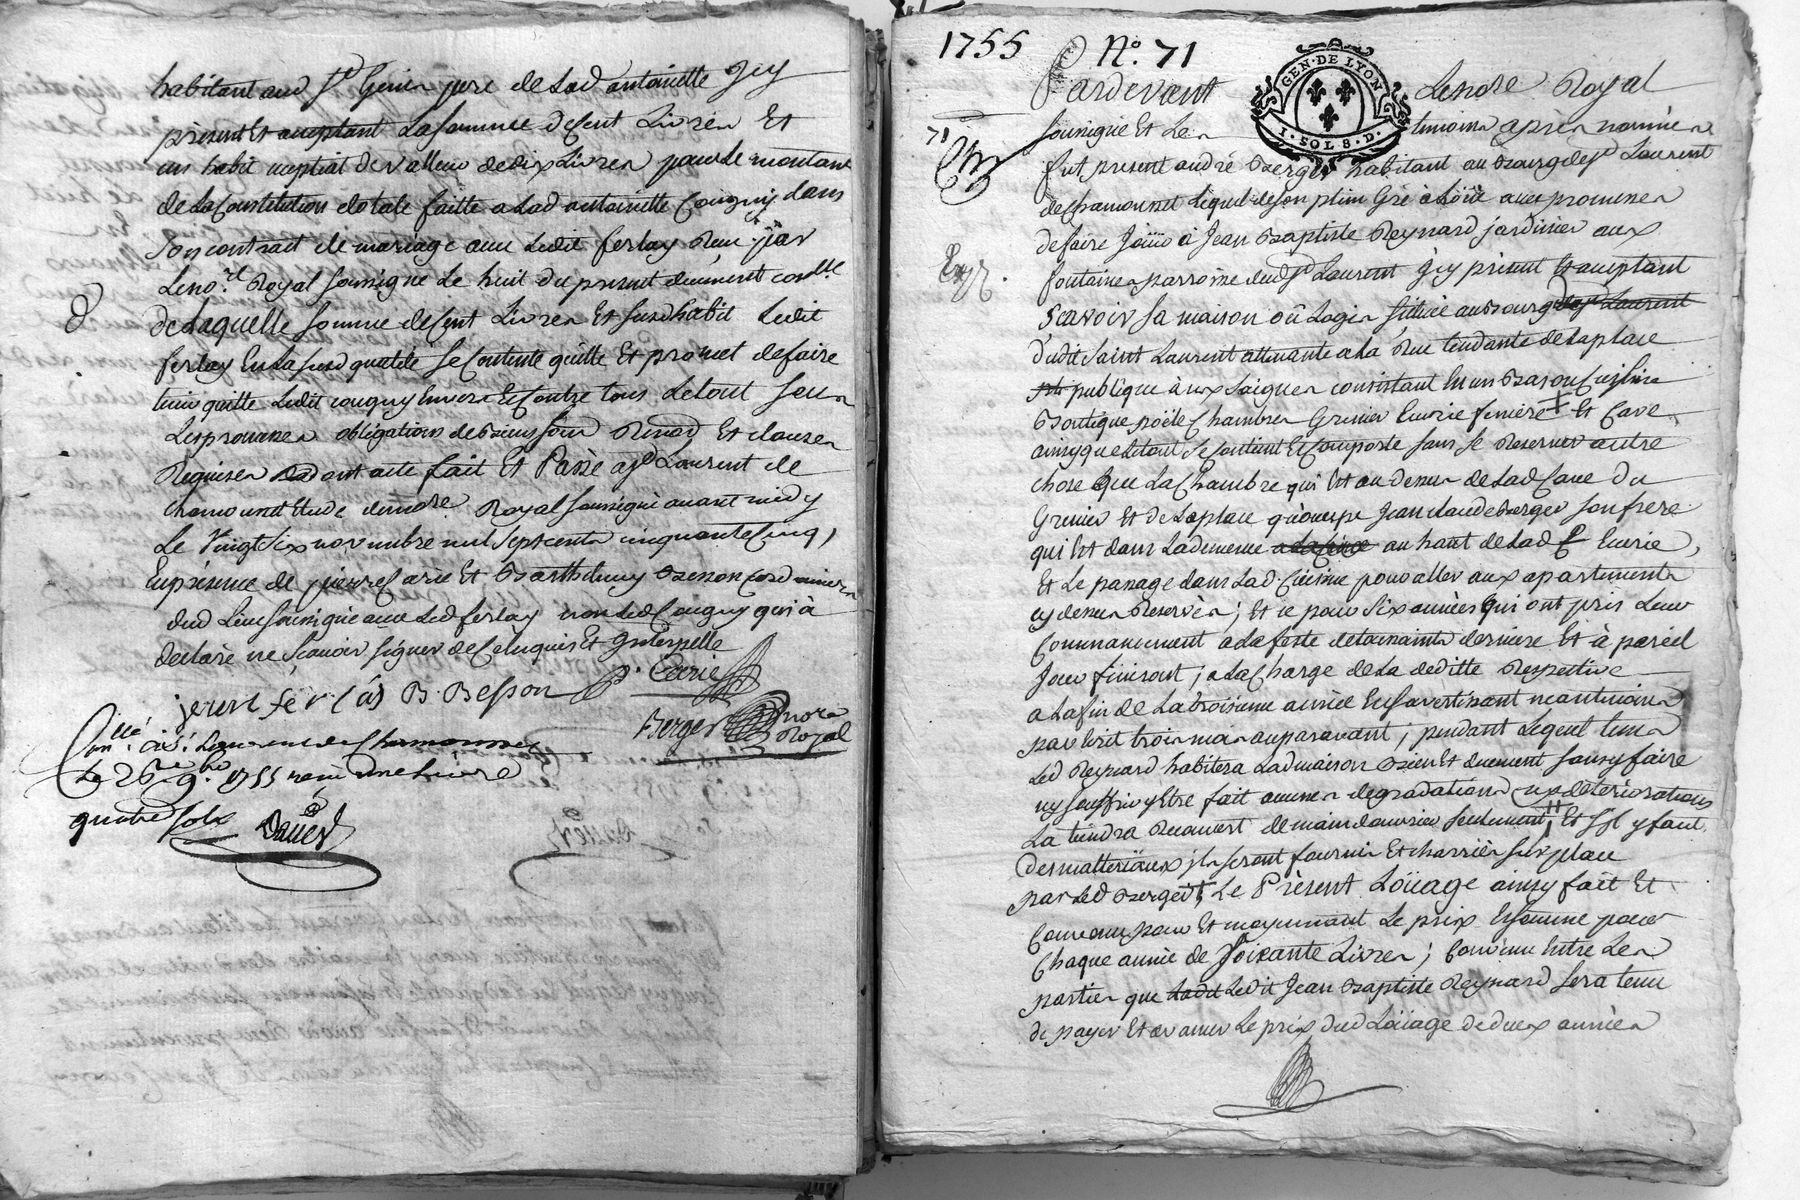 habitant aud st Genis pere de lad antoinette Icy
présent et acceptant La somme de Cent Livres Et
un habit nuptial de valleur de dix Livres pour le montant
de la Constitution dotale faitte a Lad antoinette Cougny dans
son contract de mariage avec Ledit ferlay Reçu par
Le no.re Royal soussigné Le huit du présent duement con.llé
de Laquelle somme de Cent Livres Et susd habit Ledit
ferlay En La susd qualité se Contente quitte Et promet de faire
tenir quitte Ledit cougny Envers Et Contre tous Le tout sous
Les promesses obligations de biens soum Renon Et clauses
Requises dont acte fait Et Passé a st Laurent de
chamousset Etude du no.re Royal soussigné avant midy
Le Vingt Six novembre mil Sept cents cinquante Cinq,
En présence de pierre Carie Et Barthelemy Besson Cord
dud Lieu soussignés avec Led ferlay non Led Cougny qui a
declaré ne Sçavoir signer de Ce Enquis Et Interpellé
P. Carie
B. Besson
Berger no.re Royal
Con.llé a s.t Laurent de Chamousset
Le 26 9.bre 1755
quatre sols
1755 N.o 71
GEN. DE LYON
I. SOL 8. D.
Pardevant Le no.re Royal
71
soussigné Et Les temoins après nommés
fut present andré Berger habitant au Bourg de st Laurent
de chamousset Lequel de son plein Gré a Loüé avec promesses
de faire Joüir à Jean Baptiste Reynard jardinier aux
Exp.
fontaines parroisse dud st Laurent Icy présent Et acceptant
Scavoir sa maison où Logis Sittüée au Bourg de st Laurent
dudit Saint Laurent attenante a La Rue tendante de La place
publique consistant En un Bas ou Cuisine
Boutique poële Chambres Grenier Ecurie feniere Et Cave
ainsy que le tout se Contient Et Comporte sans se Reserver autre
chose que La Chambre qui Est au dessus de Lad Cave du
Grenier Et de La place qu'occupe Jean claude berger son frere
qui Est dans au haut de Lad Ecurie,
Et Le passage dans Lad Cuisine pour aller aux apartements
cy dessus Reservés; Et ce pour Six années qui ont pris Leur
Commancement a La feste de toussaints derniere Et à pareil
Jour finiront, a La Charge de La deditte Respective
a La fin de La troisieme année En s'avertissant neantmoins
par Ecrit trois mois auparavant; pendant Lequel tems
Led Reynard habitera Lad maison Bien Et duement sans y faire
ny souffrir y Etre fait aucunes degradations ny deteriorations
La tiendra Recouvert de main d'ouvrier seulement, Et s'il y faut
des matteriaux ils seront fournis Et charriés sur place
par Led Berger Le Présent Loüage ainsy fait Et
Convenu pour Et moyennant Le prix Et somme pour
Chaque année de Soixante Livres; Convenu Entre Les
parties que Ledit Jean Baptiste Reynard sera tenu
de payer Et avancer Le prix dud Loüage de deux années